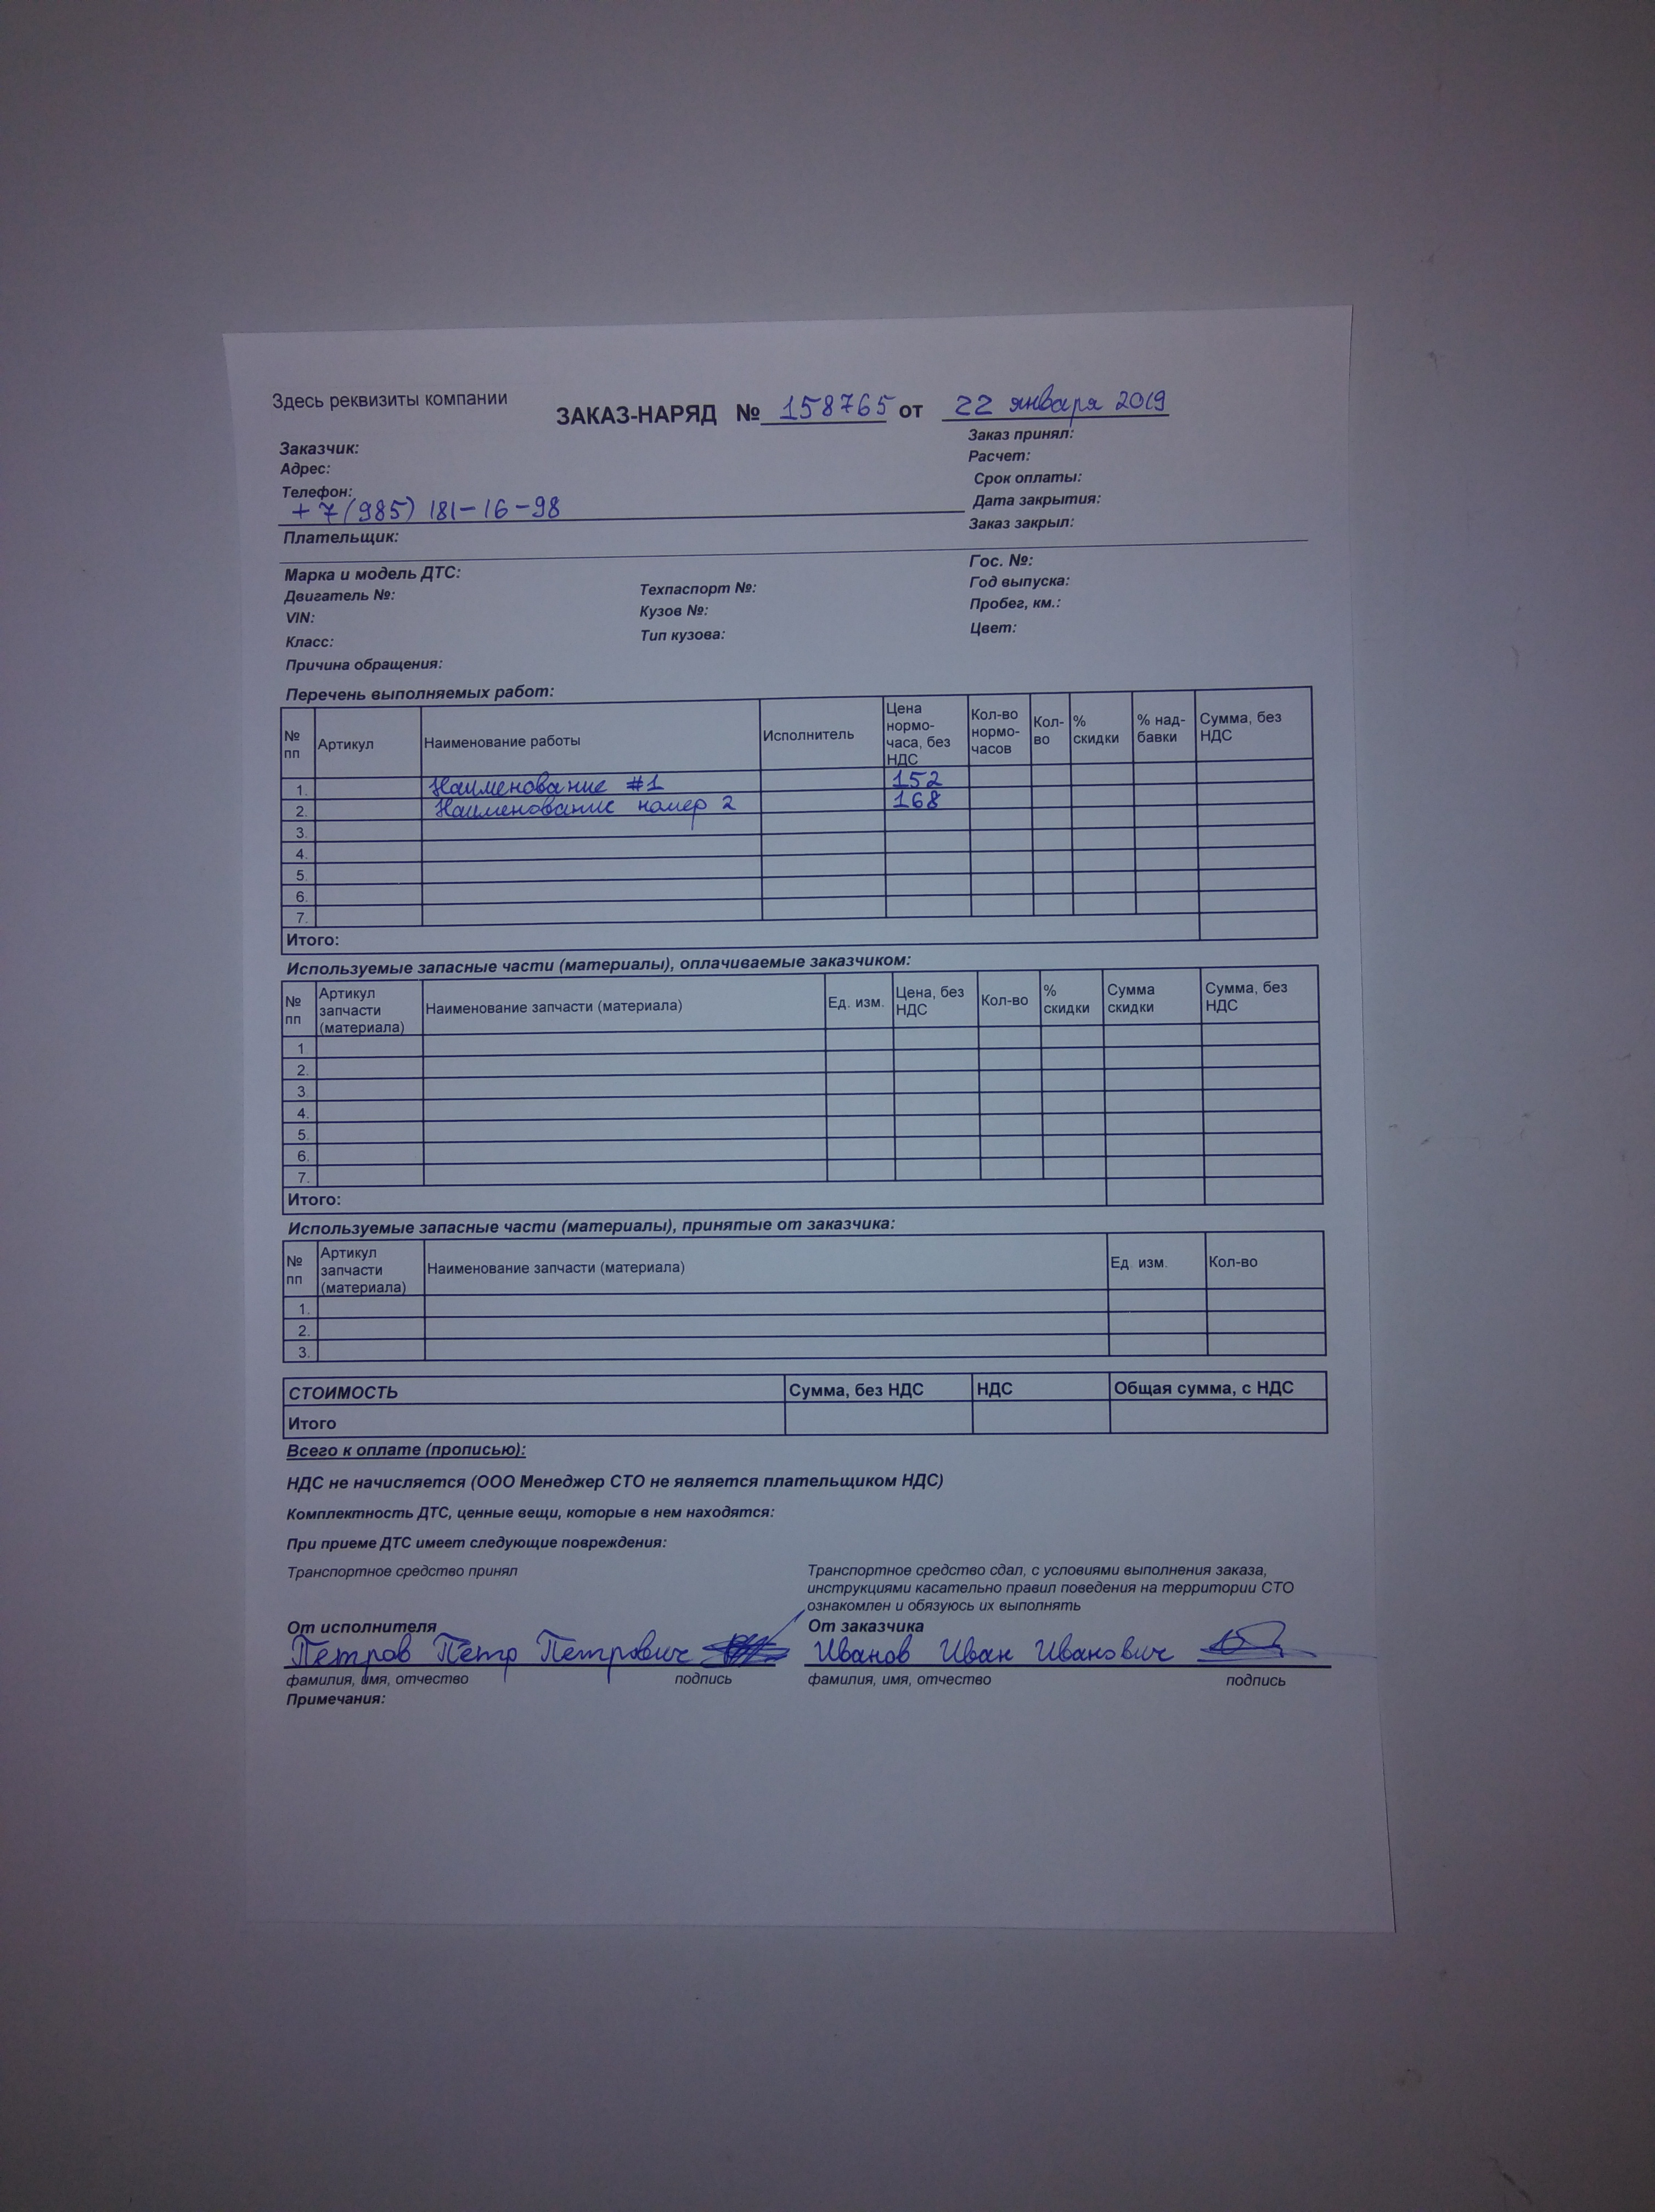 Здесь реквизиты компании
ЗАКАЗ-НАРЯД № 158765 от 22 января 2019
Заказчик:
Адрес:
Телефон:
+7(985) 181-16-98
Плательщик:
Заказ принял:
Расчет:
Срок оплаты:
Дата закрытия:
Заказ закрыл:
Марка и модель ДТС:
Двигатель №:
VIN:
Класс:
Причина обращения:
Техпаспорт №:
Кузов №:
Тип кузова:
Гос. №:
Год выпуска:
Пробег, км.:
Цвет:
Перечень выполняемых работ:
№ пп Артикул Наименование работы Исполнитель Цена нормо-часа, без НДС Кол-во нормо-часов Кол-во % скидки % над-бавки Сумма, без НДС
1. Наименование #1 152
2. Наименование номер 2 168
3.
4.
5.
6.
7.
Итого:
Используемые запасные части (материалы), оплачиваемые заказчиком:
№ пп Артикул запчасти (материала) Наименование запчасти (материала) Ед. изм. Цена, без НДС Кол-во % скидки Сумма скидки Сумма, без НДС
1
2.
3.
4.
5.
6.
7.
Итого:
Используемые запасные части (материалы), принятые от заказчика:
№ пп Артикул запчасти (материала) Наименование запчасти (материала) Ед. изм. Кол-во
1.
2.
3.
СТОИМОСТЬ Сумма, без НДС НДС Общая сумма, с НДС
Итого
Всего к оплате (прописью):
НДС не начисляется (ООО Менеджер СТО не является плательщиком НДС)
Комплектность ДТС, ценные вещи, которые в нем находятся:
При приеме ДТС имеет следующие повреждения:
Транспортное средство принял
Транспортное средство сдал, с условиями выполнения заказа,
инструкциями касательно правил поведения на территории СТО
ознакомлен и обязуюсь их выполнять
От исполнителя
Петров Пётр Петрович
фамилия, имя, отчество подпись
От заказчика
Иванов Иван Иванович
фамилия, имя, отчество подпись
Примечания: